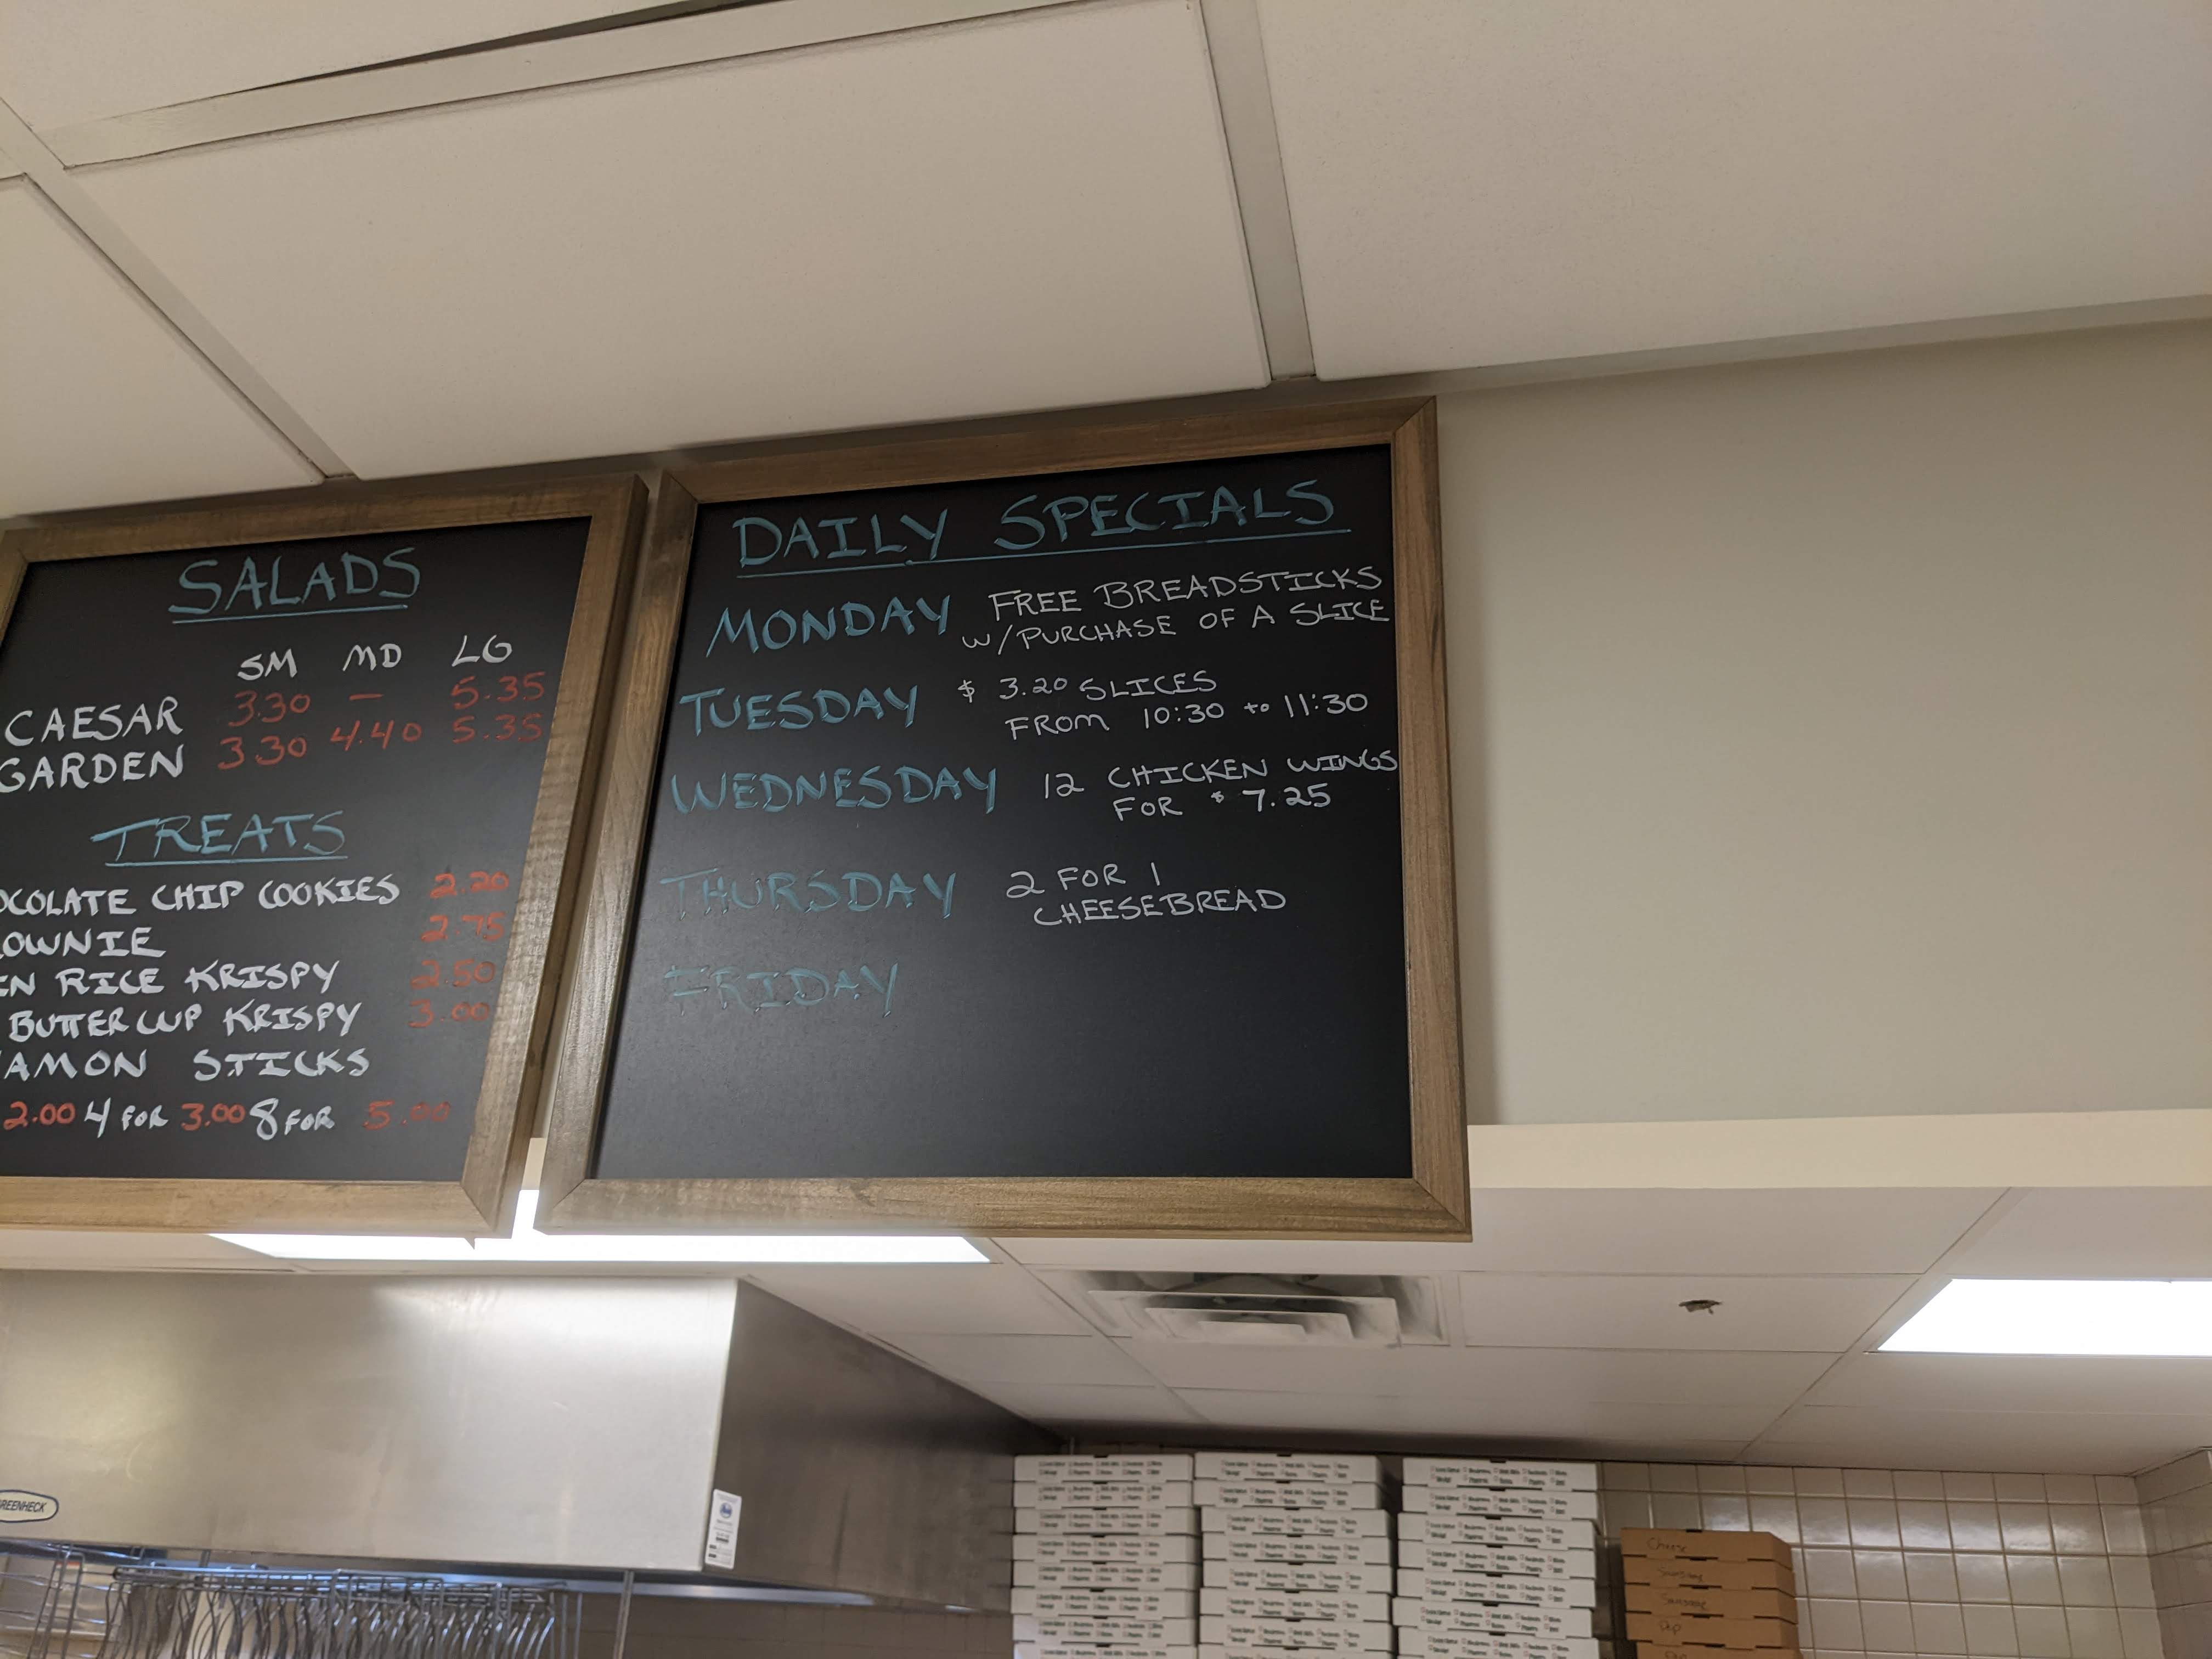 SALADS
SM MD LG
CAESAR 3.30 — 5.35
GARDEN 3.30 4.40 5.35
TREATS
OCOLATE CHIP COOKIES 2.20
OWNIE 2.75
EN RICE KRISPY 2.50
BUTTER CUP KRISPY 3.00
AMON STICKS
2.00 4 FOR 3.00 8 FOR 5.00
DAILY SPECIALS
MONDAY FREE BREADSTICKS
W/PURCHASE OF A SLICE
TUESDAY $ 3.20 SLICES
FROM 10:30 to 11:30
WEDNESDAY 12 CHICKEN WINGS
FOR $ 7.25
THURSDAY 2 FOR 1
CHEESEBREAD
FRIDAY
REENHECK
Cheese
Sausage